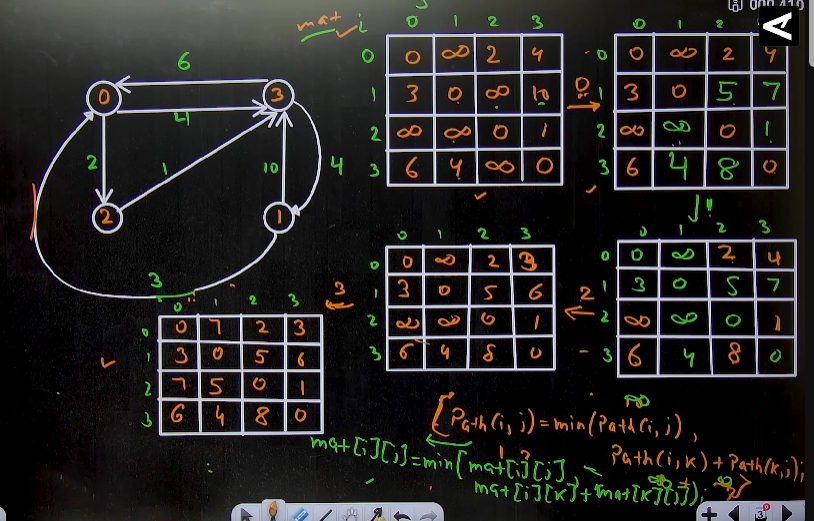 mat i 0 1 2 3
0 0 ∞ 2 4
1 3 0 ∞ 10
2 ∞ ∞ 0 1
3 6 4 ∞ 0
0
0 1 2
0 0 ∞ 2 4
1 3 0 5 7
2 ∞ ∞ 0 1
3 6 4 8 0
6
0 3
4
2 1 10 4
2 1
3
0 1 2 3
0 0 ∞ 2 4
1 3 0 5 7
2 ∞ ∞ 0 1
3 6 4 8 0
2
0 1 2 3
0 0 ∞ 2 3
1 3 0 5 6
2 ∞ ∞ 0 1
3 6 4 8 0
3
0 1 2 3
0 0 7 2 3
1 3 0 5 6
2 7 5 0 1
3 6 4 8 0
Path(i,j) = min(Path(i,j),
Path(i,k) + Path(k,j);
mat[i][j] = min(mat[i][j],
mat[i][k] + mat[k][j]);